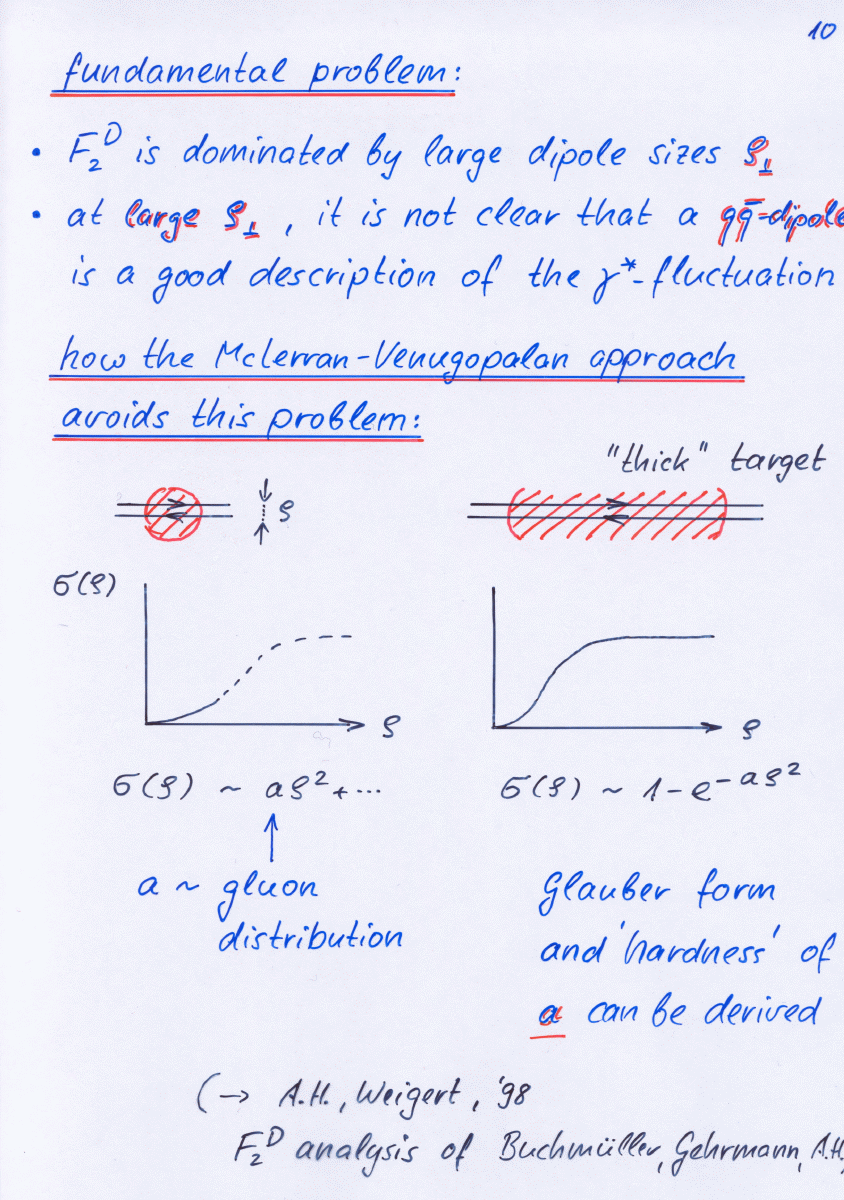 10
fundamental problem:
• F₂ᴰ is dominated by large dipole sizes ϱ⊥
• at large ϱ⊥, it is not clear that a qq̄-dipole
is a good description of the γ*-fluctuation
how the McLerran-Venugopalan approach
avoids this problem:
"thick" target
ϱ
σ(ϱ)
ϱ ϱ
σ(ϱ) ~ aϱ² + ... σ(ϱ) ~ 1 - e^{-aϱ²}
a ~ gluon Glauber form
distribution and 'hardness' of
a can be derived
(→ A.H., Weigert, '98
F₂ᴰ analysis of Buchmüller, Gehrmann, A.H.,